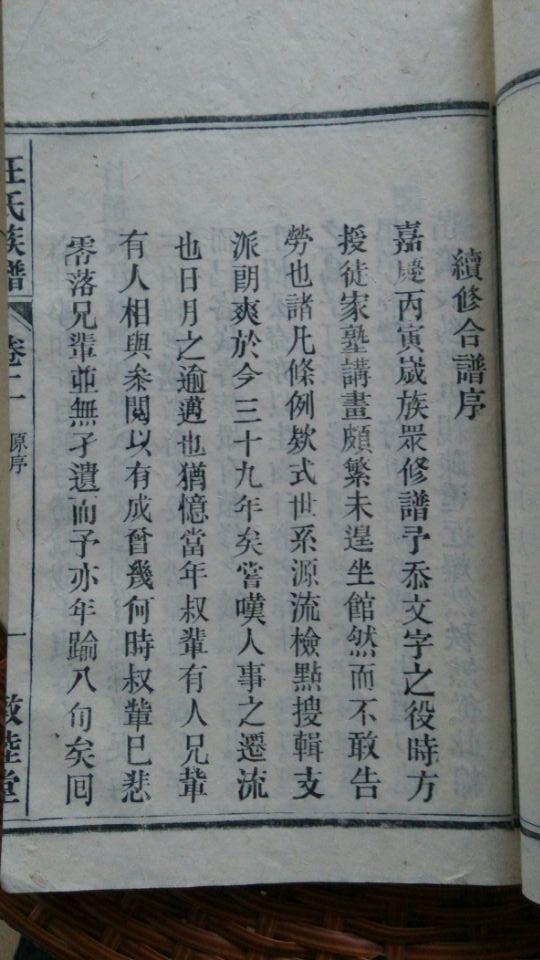 續修合譜序
嘉慶丙寅嵗族眾修譜予忝文字之役時方
授徒家塾講畫頗繁未遑坐館然而不敢告
勞也諸凡條例欵式世系源流檢點搜輯支
派朗爽於今三十九年矣嘗嘆人事之遷流
也日月之逾邁也猶憶當年叔輩有人兄輩
有人相與叅閱以有成曾幾何時叔輩已悲
零落兄輩並無孑遺而予亦年踰八旬矣囘
汪氏族譜
卷二
原序
一
敦睦堂